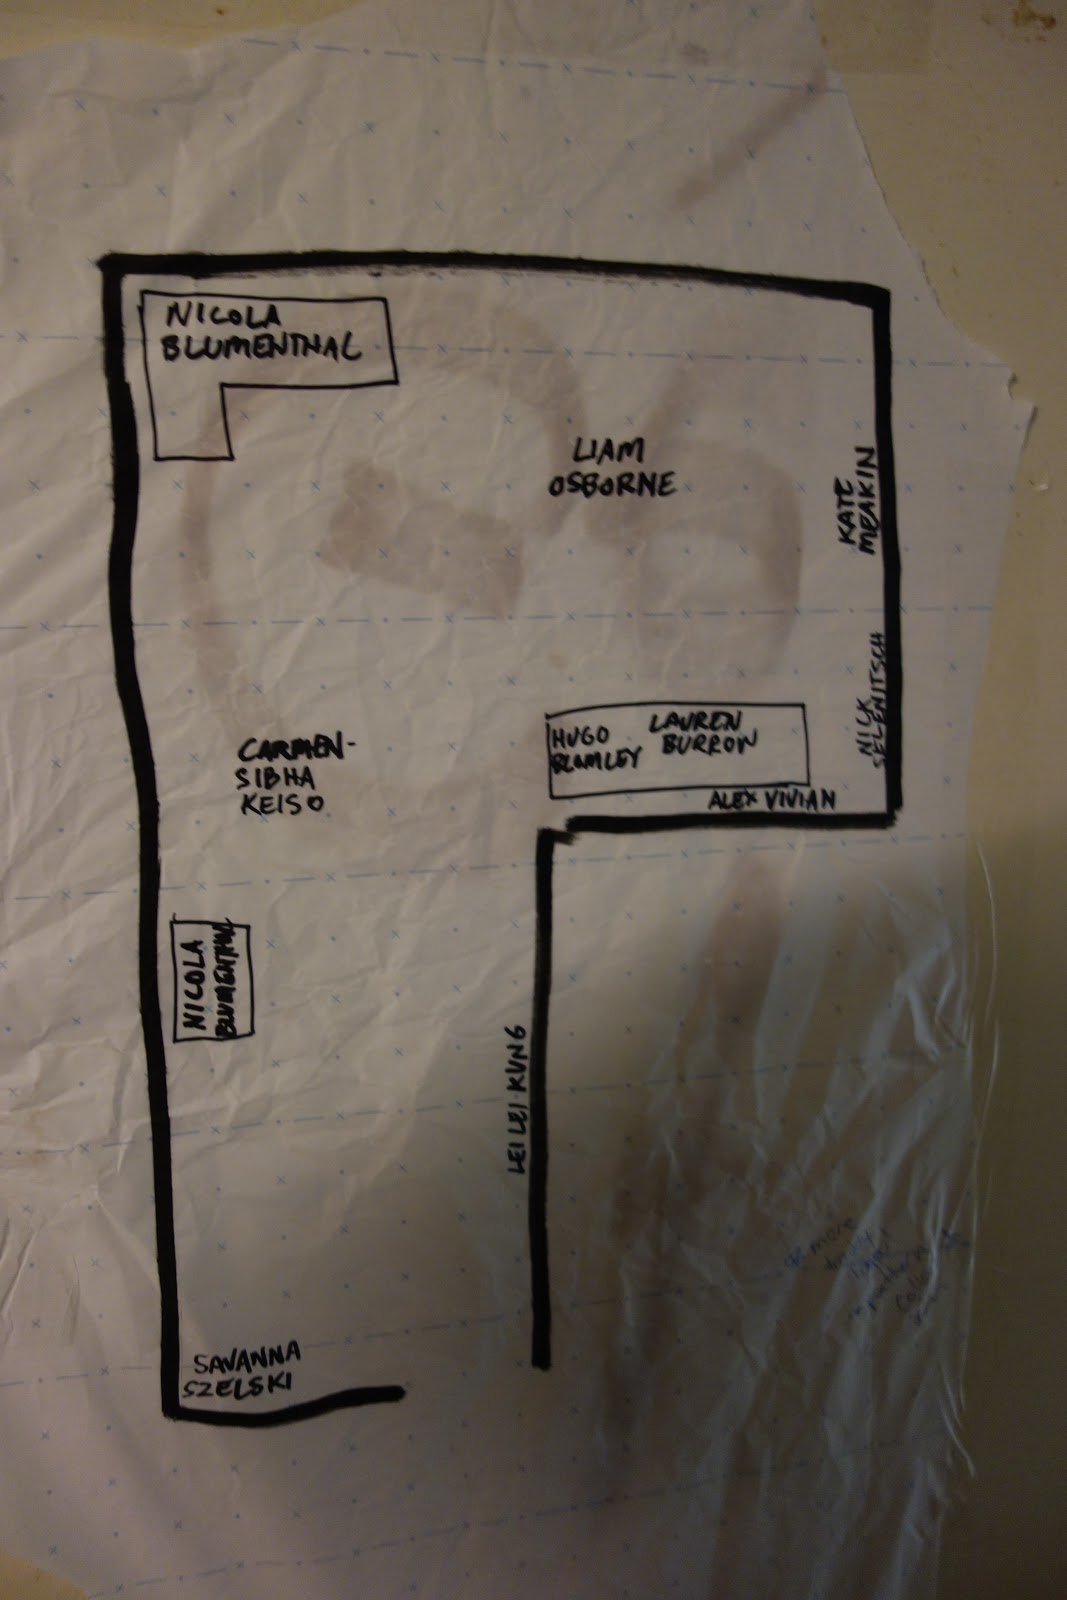 NICOLA
BLUMENTHAL
LIAM
OSBORNE
KATE
MEAKIN
NICK
SELENITSCH
HUGO
BLOMLEY
LAUREN
BURROW
ALEX VIVIAN
CARMEN-
SIBHA
KEISO
NICOLA
BLUMENTHAL
LEI LEI KUNG
SAVANNA
SZELSKI